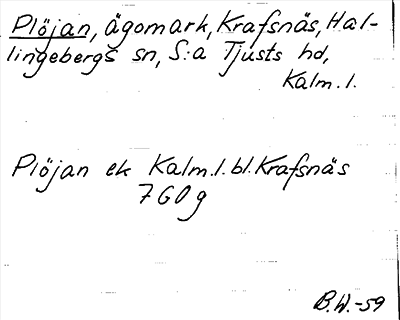 Plöjan, ägomark, Krafsnäs, Hal-
lingebergs sn, S:a Tjusts hd,
Kalm. l.
Plöjan ek Kalm. l. bl. Krafsnäs
7 G O g
B.W.-59